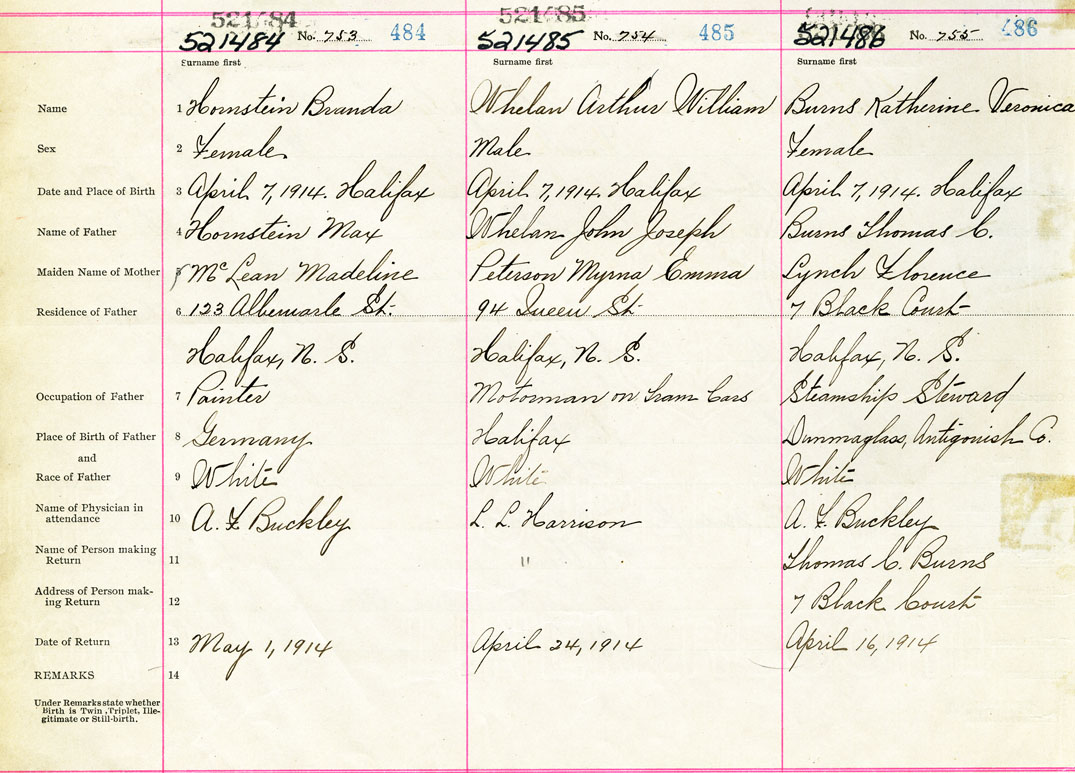 521484 521485
521484 No. 753 484 521485 No. 754 485 521486 No. 755 486
Surname first Surname first Surname first
Name 1 Hornstein Branda Whelan Arthur William Burns Katherine Veronica
Sex 2 Female Male Female
Date and Place of Birth 3 April 7, 1914. Halifax April 7, 1914. Halifax April 7, 1914. Halifax
Name of Father 4 Hornstein Max Whelan John Joseph Burns Thomas C.
Maiden Name of Mother 5 McLean Madeline Peterson Myrna Emma Lynch Florence
Residence of Father 6 123 Albemarle St. 94 Queen St 7 Black Court
Halifax, N. S. Halifax, N. S. Halifax, N. S.
Occupation of Father 7 Painter Motorman on Tram Cars Steamship Steward
Place of Birth of Father 8 Germany Halifax Dunmaglass, Antigonish Co.
and
Race of Father 9 White White White
Name of Physician in
attendance 10 A. F. Buckley L. L. Harrison A. F. Buckley
Name of Person making
Return 11 " Thomas C. Burns
Address of Person mak-
ing Return 12 7 Black Court
Date of Return 13 May 1, 1914 April 24, 1914 April 16, 1914
REMARKS 14
Under Remarks state whether
Birth is Twin, Triplet, Ille-
gitimate or Still-birth.